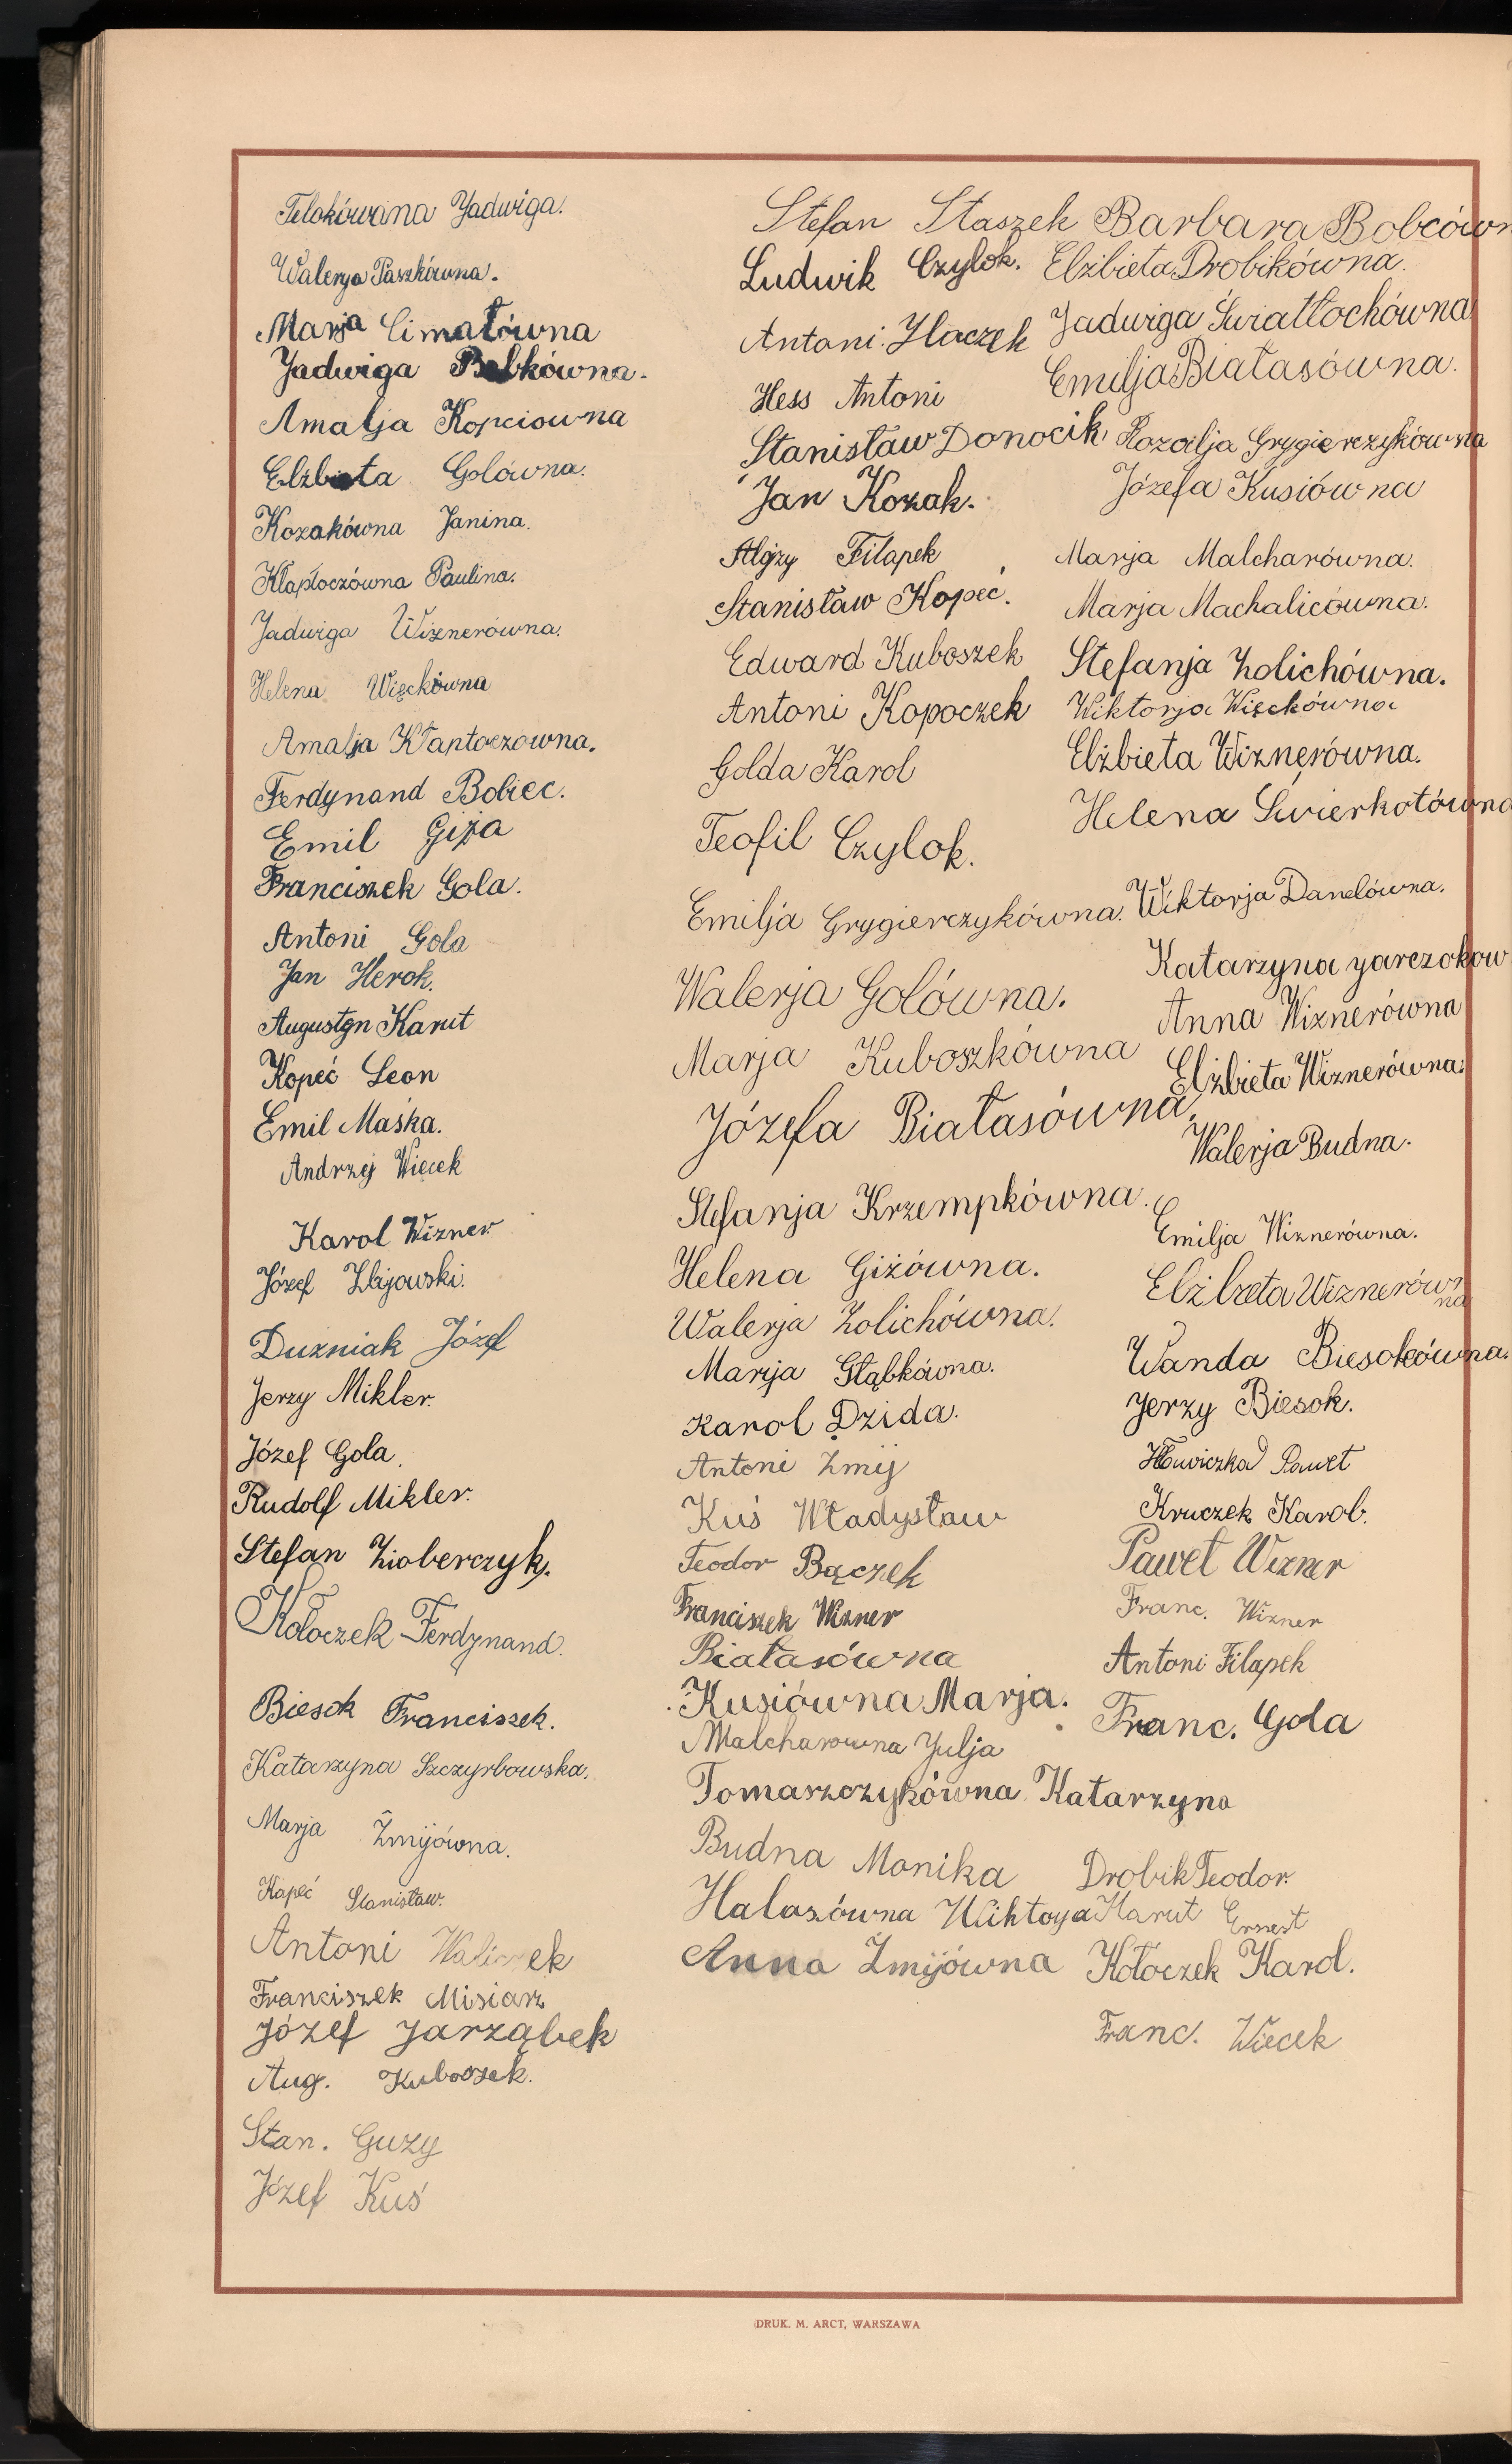 Telokówana Jadwiga.
Walerja Paszkówna.
Marja Cimałówna
Jadwiga Bobkówna.
Amalja Kopciowna
Elżbieta Golówna.
Kozakówna Janina.
Kłaptoczówna Paulina.
Jadwiga Wiznerówna.
Helena Więckówna
Amalja Kłaptoczowna.
Ferdynand Bobiec.
Emil Giża
Franciszek Gola.
Antoni Gola
Jan Herok.
Augustyn Karut
Kopeć Leon
Emil Maśka.
Andrzej Więcek
Karol Wizner
Józef Zbijowski.
Duzniak Józef
Jerzy Mikler.
Józef Gola.
Rudolf Mikler.
Stefan Zioberczyk.
Kołoczek Ferdynand.
Biesok Franciszek.
Katarzyna Szczyrbowska.
Marja Żmijówna.
Kapeć Stanisław.
Antoni
Franciszek Misiarz
Józef Jarząbek
Aug. Kuboszek.
Stan. Guzy
Józef Kuś
Stefan Staszek
Ludwik Czylok.
Antoni Haczek
Hess Antoni
Stanisław Donocik
Jan Kozak.
Alojzy Filapek
Stanisław Kopeć.
Edward Kuboszek
Antoni Kopoczek
Golda Karol
Teofil Czylok.
Emilja Grygierczykówna.
Walerja Golówna.
Marja Kuboszkówna
Józefa Białasówna.
Stefanja Krzempkówna.
Helena Giżówna.
Walerja Zolichówna.
Marija Głąbkówna.
Karol Dzida.
Antoni Żmij
Kuś Władysław
Teodor Bączek
Franciszek Wizner
Białasówna
Kusiówna Marja.
Malcharowna Julja
Tomaszczykówna Katarzyna
Budna Monika
Halaszówna Wiktorja
Anna Żmijówna
Barbara Bobcówn
Elżbieta Drobikówna.
Jadwiga Światłochówna
Emilja Białasówna.
Rozalja Grygierczykówna
Józefa Kusiówna
Marja Malcharówna.
Marja Machalicówna.
Stefanja Zolichówna.
Wiktorja Więckówna
Elżbieta Wiznerówna.
Helena Świerkotówna
Wiktorja Danelówna.
Katarzyna Jarczokow
Anna Wiznerówna
Elżbieta Wiznerówna.
Walerja Budna.
Emilja Wiznerówna.
Elżbieta Wiznerówna
Wanda Biesokówna.
Jerzy Biesok.
Hławiczka Paweł
Kruczek Karol.
Paweł Wizner
Franc. Wizner
Antoni Filapek
Franc. Gola
Drobik Teodor.
Karut Ernest
Kołoczek Karol.
Franc. Więcek
DRUK. M. ARCT, WARSZAWA